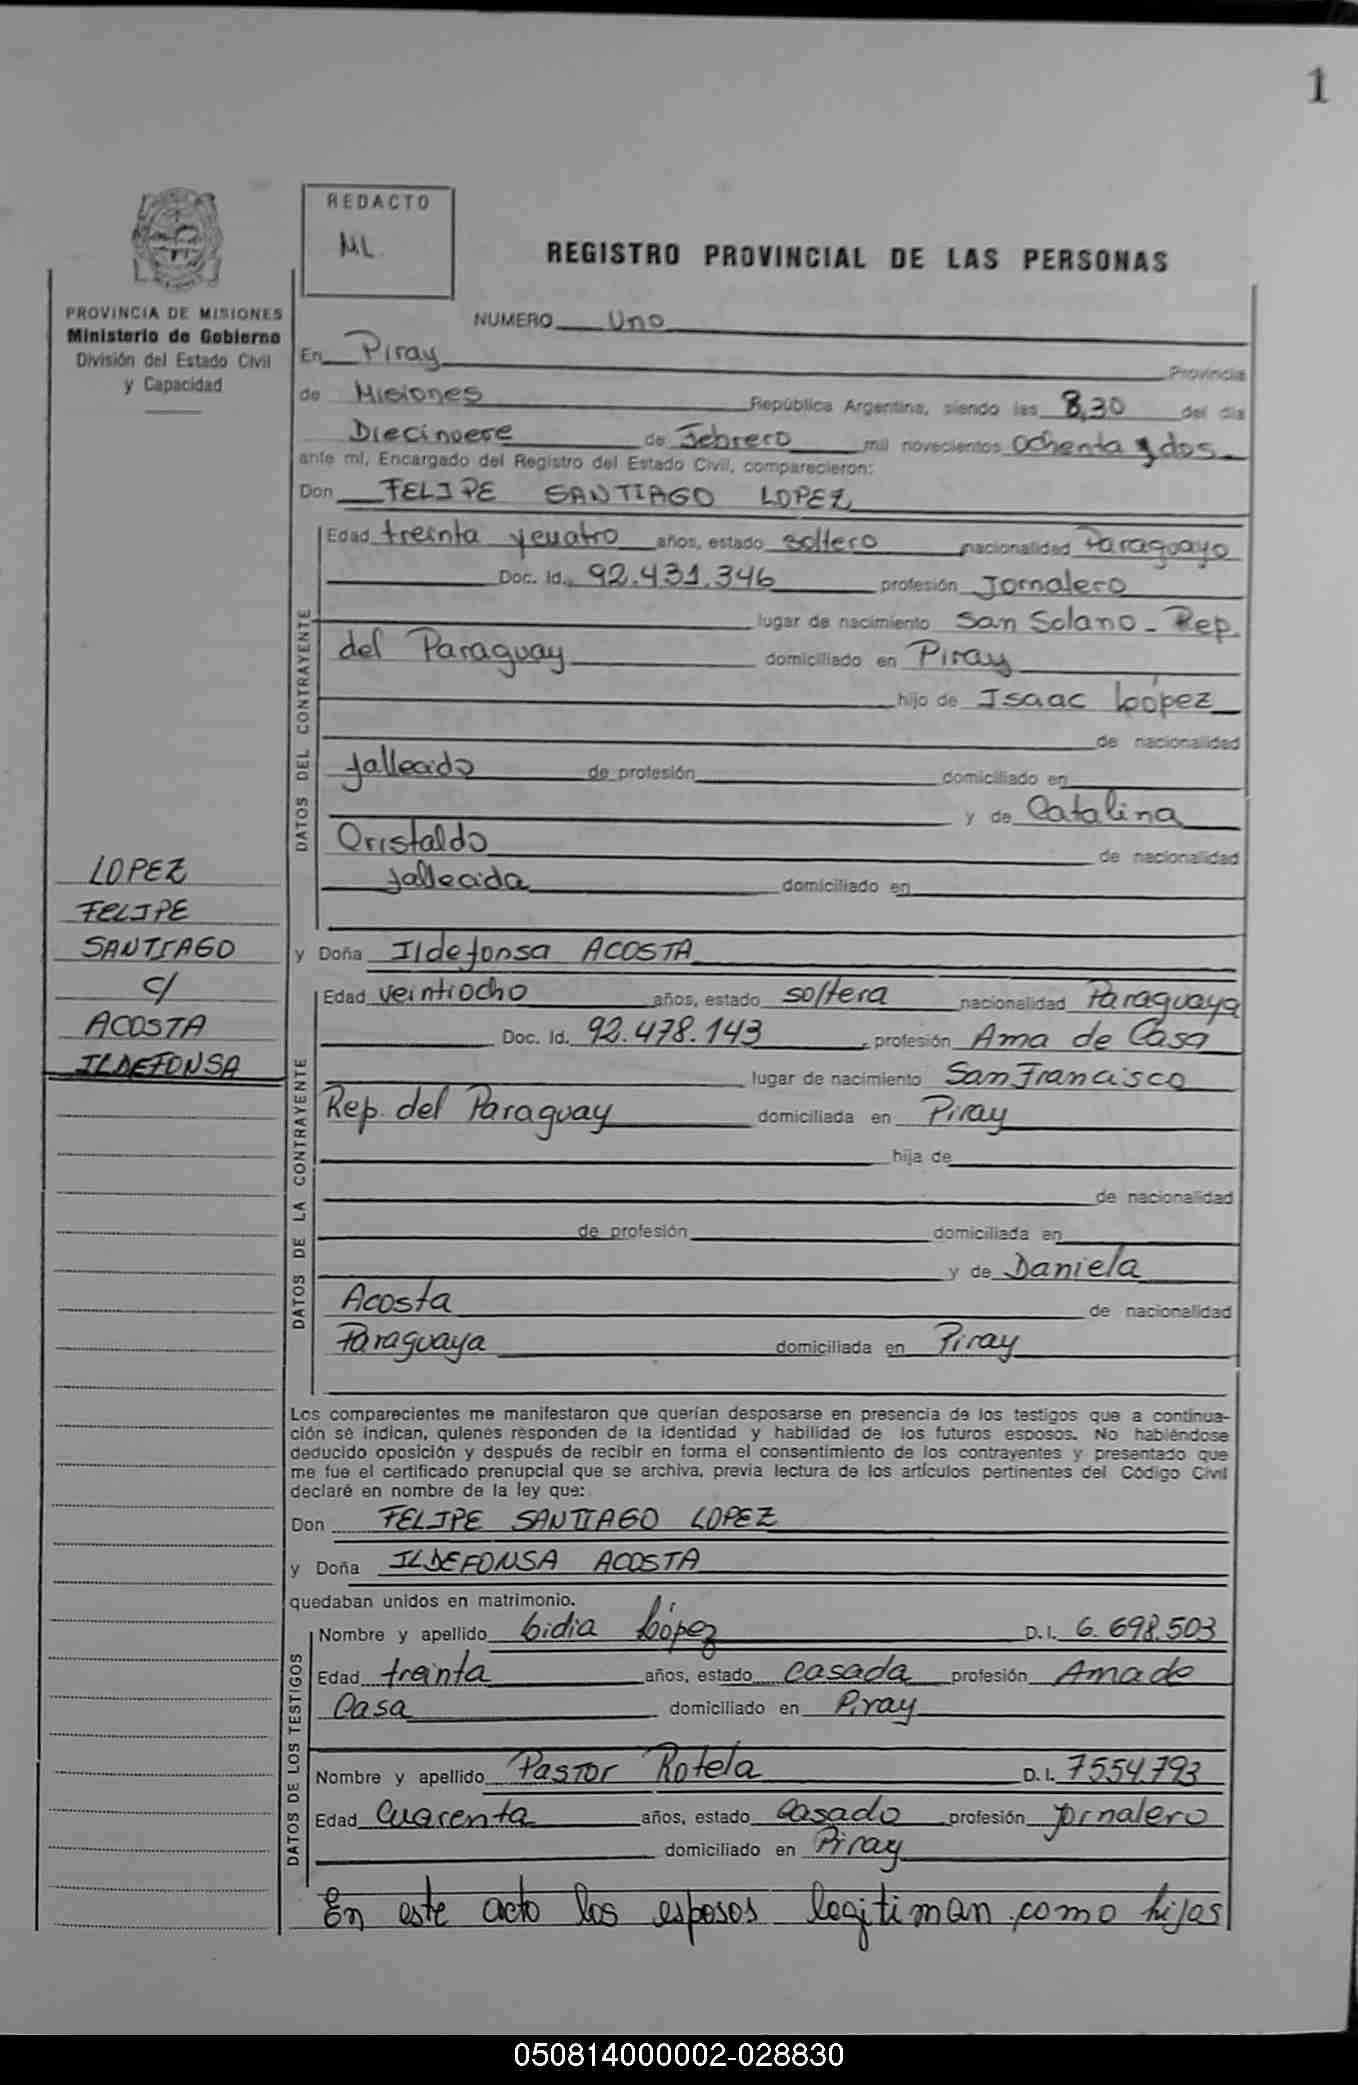 1
REDACTO
ML.
REGISTRO PROVINCIAL DE LAS PERSONAS
PROVINCIA DE MISIONES
Ministerio de Gobierno
División del Estado Civil
y Capacidad
NUMERO Uno
En Piray Provincia
de Misiones República Argentina, siendo las 8,30 del día
Diecinueve de Febrero mil novecientos ochenta y dos
ante mí, Encargado del Registro del Estado Civil, comparecieron:
Don FELIPE SANTIAGO LOPEZ
DATOS DEL CONTRAYENTE
Edad treinta y cuatro años, estado soltero nacionalidad Paraguayo
Doc. Id. 92.431.346 profesión Jornalero
lugar de nacimiento San Solano - Rep.
del Paraguay domiciliado en Piray
hijo de Isaac López
de nacionalidad
fallecido de profesión domiciliado en
y de Catalina
Cristaldo de nacionalidad
fallecida domiciliado en
LOPEZ
FELIPE
SANTIAGO
c/
ACOSTA
ILDEFONSA
y Doña Ildefonsa ACOSTA
DATOS DE LA CONTRAYENTE
Edad veintiocho años, estado soltera nacionalidad Paraguaya
Doc. Id. 92.478.143, profesión Ama de Casa
lugar de nacimiento San Francisco
Rep. del Paraguay domiciliada en Piray
hija de
de nacionalidad
de profesión domiciliada en
y de Daniela
Acosta de nacionalidad
Paraguaya domiciliada en Piray
Los comparecientes me manifestaron que querían desposarse en presencia de los testigos que a continua-
ción se indican, quienes responden de la identidad y habilidad de los futuros esposos. No habiéndose
deducido oposición y después de recibir en forma el consentimiento de los contrayentes y presentado que
me fue el certificado prenupcial que se archiva, previa lectura de los artículos pertinentes del Código Civil
declaré en nombre de la ley que:
Don FELIPE SANTIAGO LOPEZ
y Doña ILDEFONSA ACOSTA
quedaban unidos en matrimonio.
DATOS DE LOS TESTIGOS
Nombre y apellido Lidia López D.I. 6.698.503
Edad treinta años, estado casada profesión Ama de
Casa domiciliado en Piray
Nombre y apellido Pastor Rotela D.I. 7554.793
Edad Cuarenta años, estado Casado profesión jornalero
domiciliado en Piray
En este acto los esposos legitiman como hijos
050814000002-028830